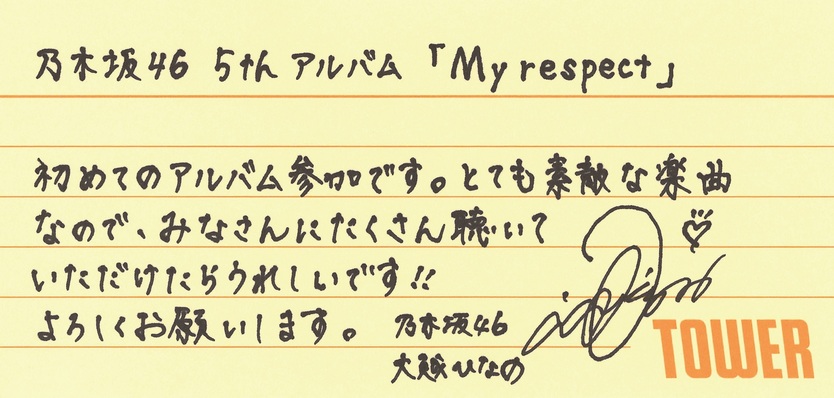 乃木坂46 5thアルバム「My respect」
初めてのアルバム参加です。とても素敵な楽曲
なので、みなさんにたくさん聴いて
いただけたらうれしいです!!
よろしくお願いします。 乃木坂46
大越ひなの
TOWER